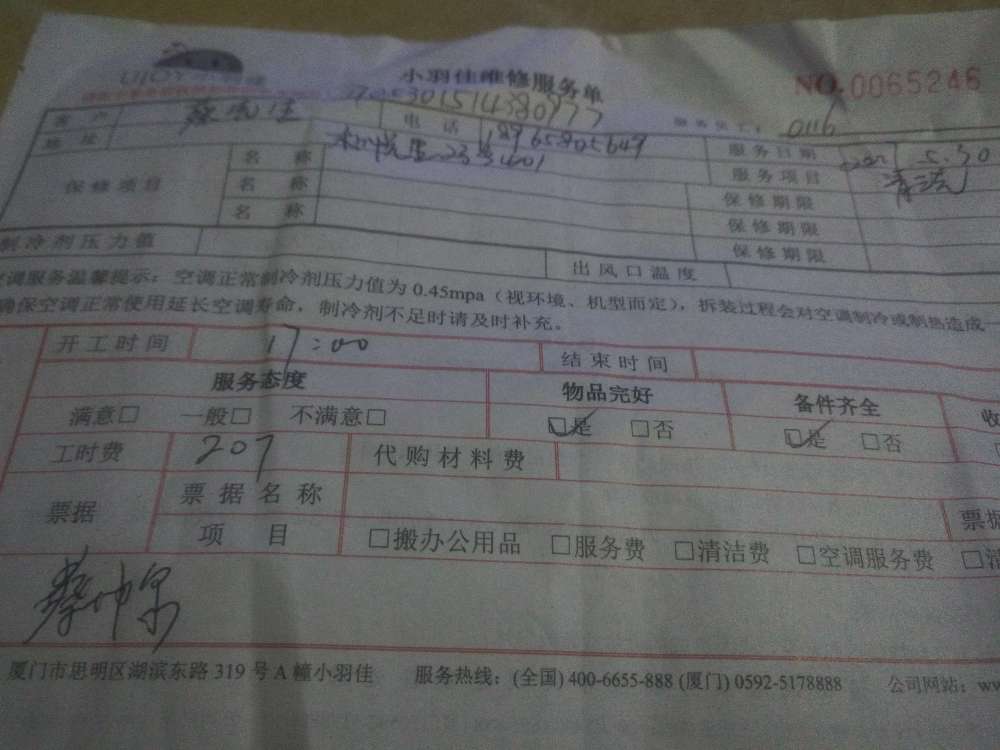 小羽佳维修服务单
NO.0065246
客户 电话 18965805649 服务员工: 0116
地址 23号601 服务日期 5.30
保修项目 名称 服务项目 清洗
名称 保修期限
名称 保修期限
保修期限
制冷剂压力值 出风口温度
空调服务温馨提示:空调正常制冷剂压力值为 0.45mpa(视环境、机型而定),拆装过程会对空调制冷或制热造成一
确保空调正常使用延长空调寿命,制冷剂不足时请及时补充。
开工时间 17:00 结束时间
服务态度 物品完好 备件齐全 收
满意□ 一般□ 不满意□ □是 □否 □是 □否
工时费 207 代购材料费
票据 票据名称 票据
项目 □搬办公用品 □服务费 □清洁费 □空调服务费
厦门市思明区湖滨东路 319 号 A 幢小羽佳 服务热线:(全国) 400-6655-888 (厦门) 0592-5178888 公司网站:ww